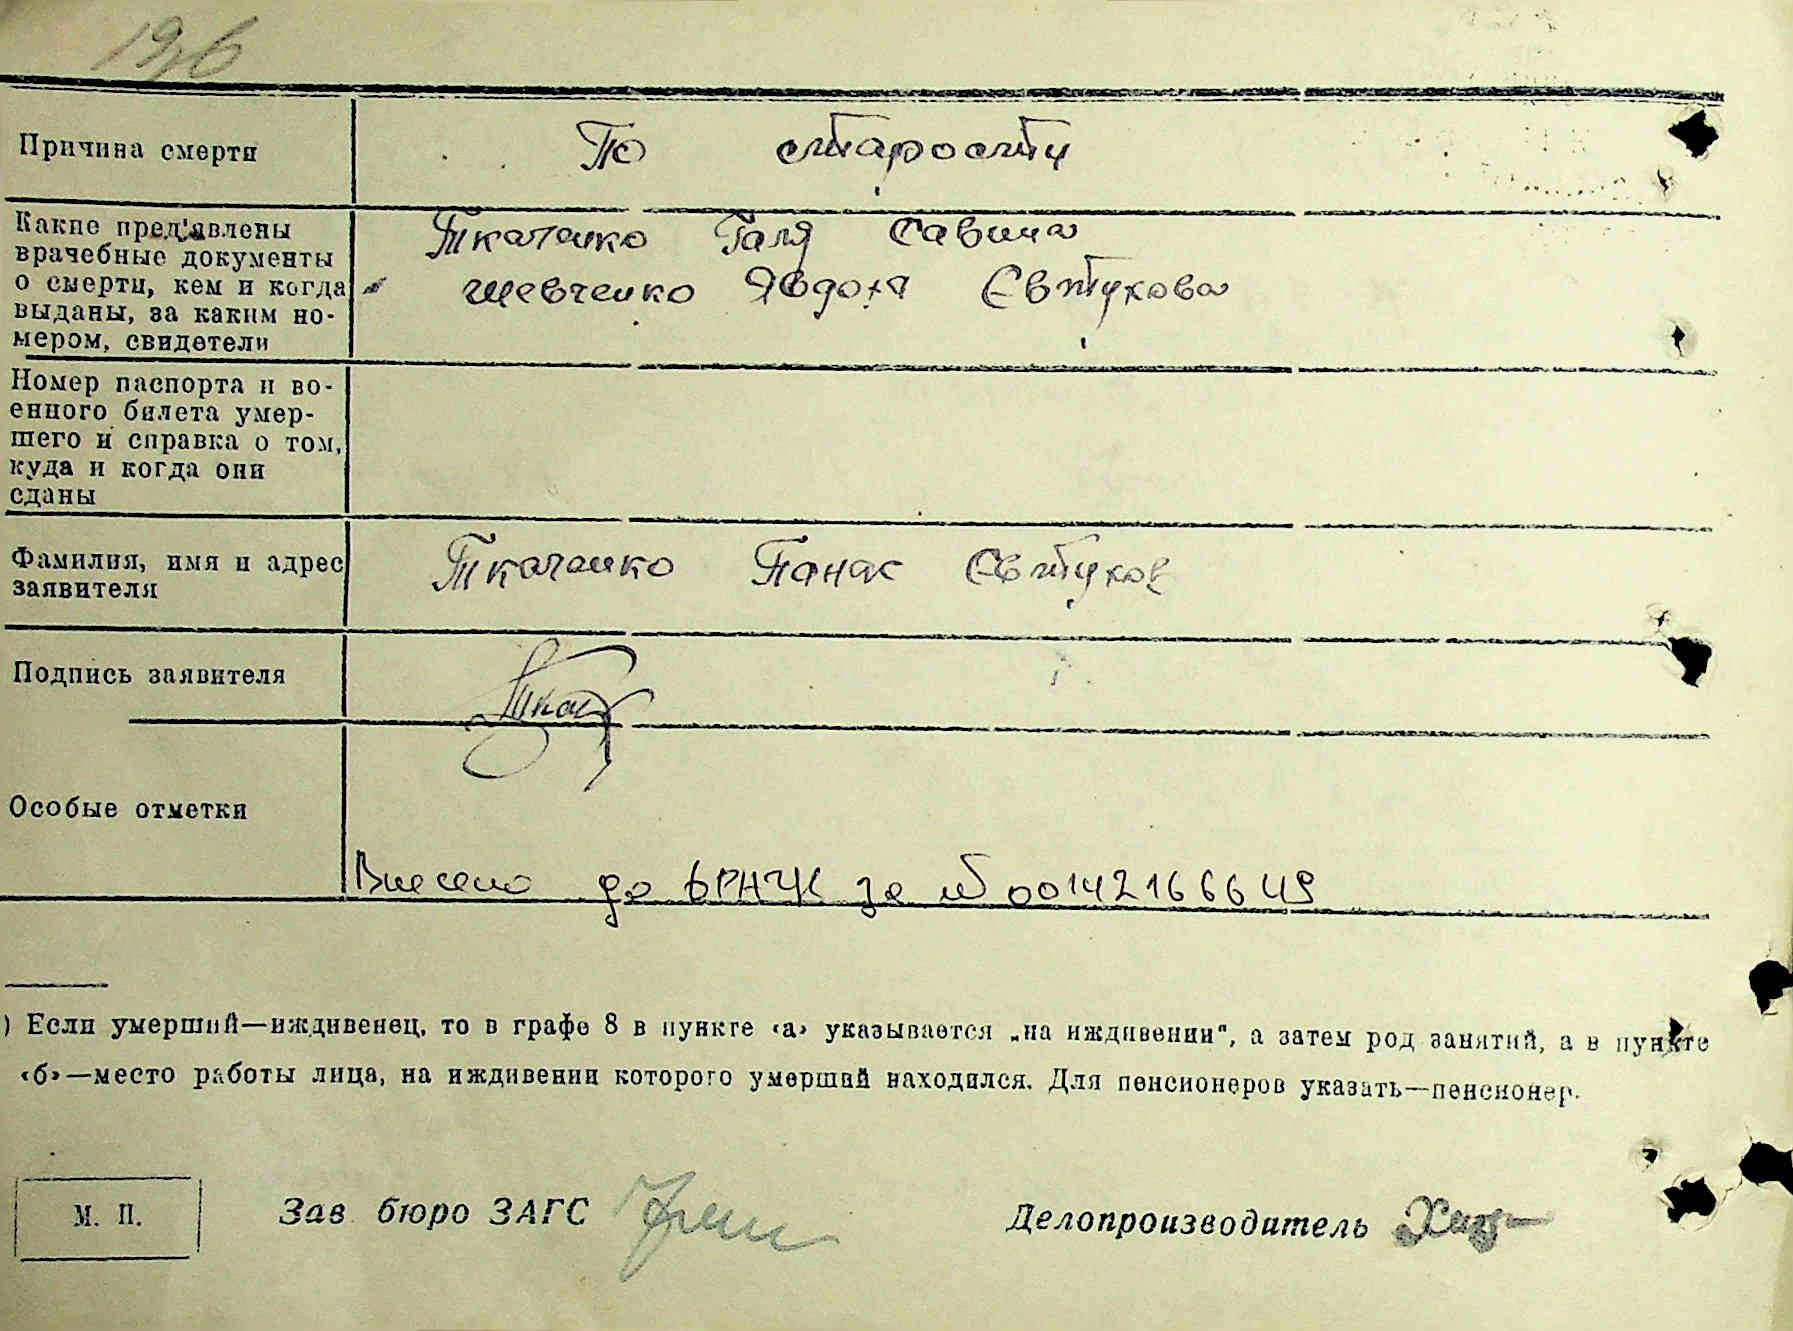 196
Причина смерти
По старости
Какие пред'явлены
врачебные документы
о смерти, кем и когда
выданы, за каким но-
мером, свидетели
Ткаченко Галя Савина
Шевченко Явдоха Євтухова
Номер паспорта и во-
енного билета умер-
шего и справка о том,
куда и когда они
сданы
Фамилия, имя и адрес
заявителя
Ткаченко Панас Євтухов
Подпись заявителя
Особые отметки
Внесено до ЕРНЧК за № 00142166649
) Если умерший—иждивенец, то в графе 8 в пункте «а» указывается „на иждивении“, а затем род занятий, а в пункте
«б»—место работы лица, на иждивении которого умерший находился. Для пенсионеров указать—пенсионер.
М. П.
Зав бюро ЗАГС
Делопроизводитель